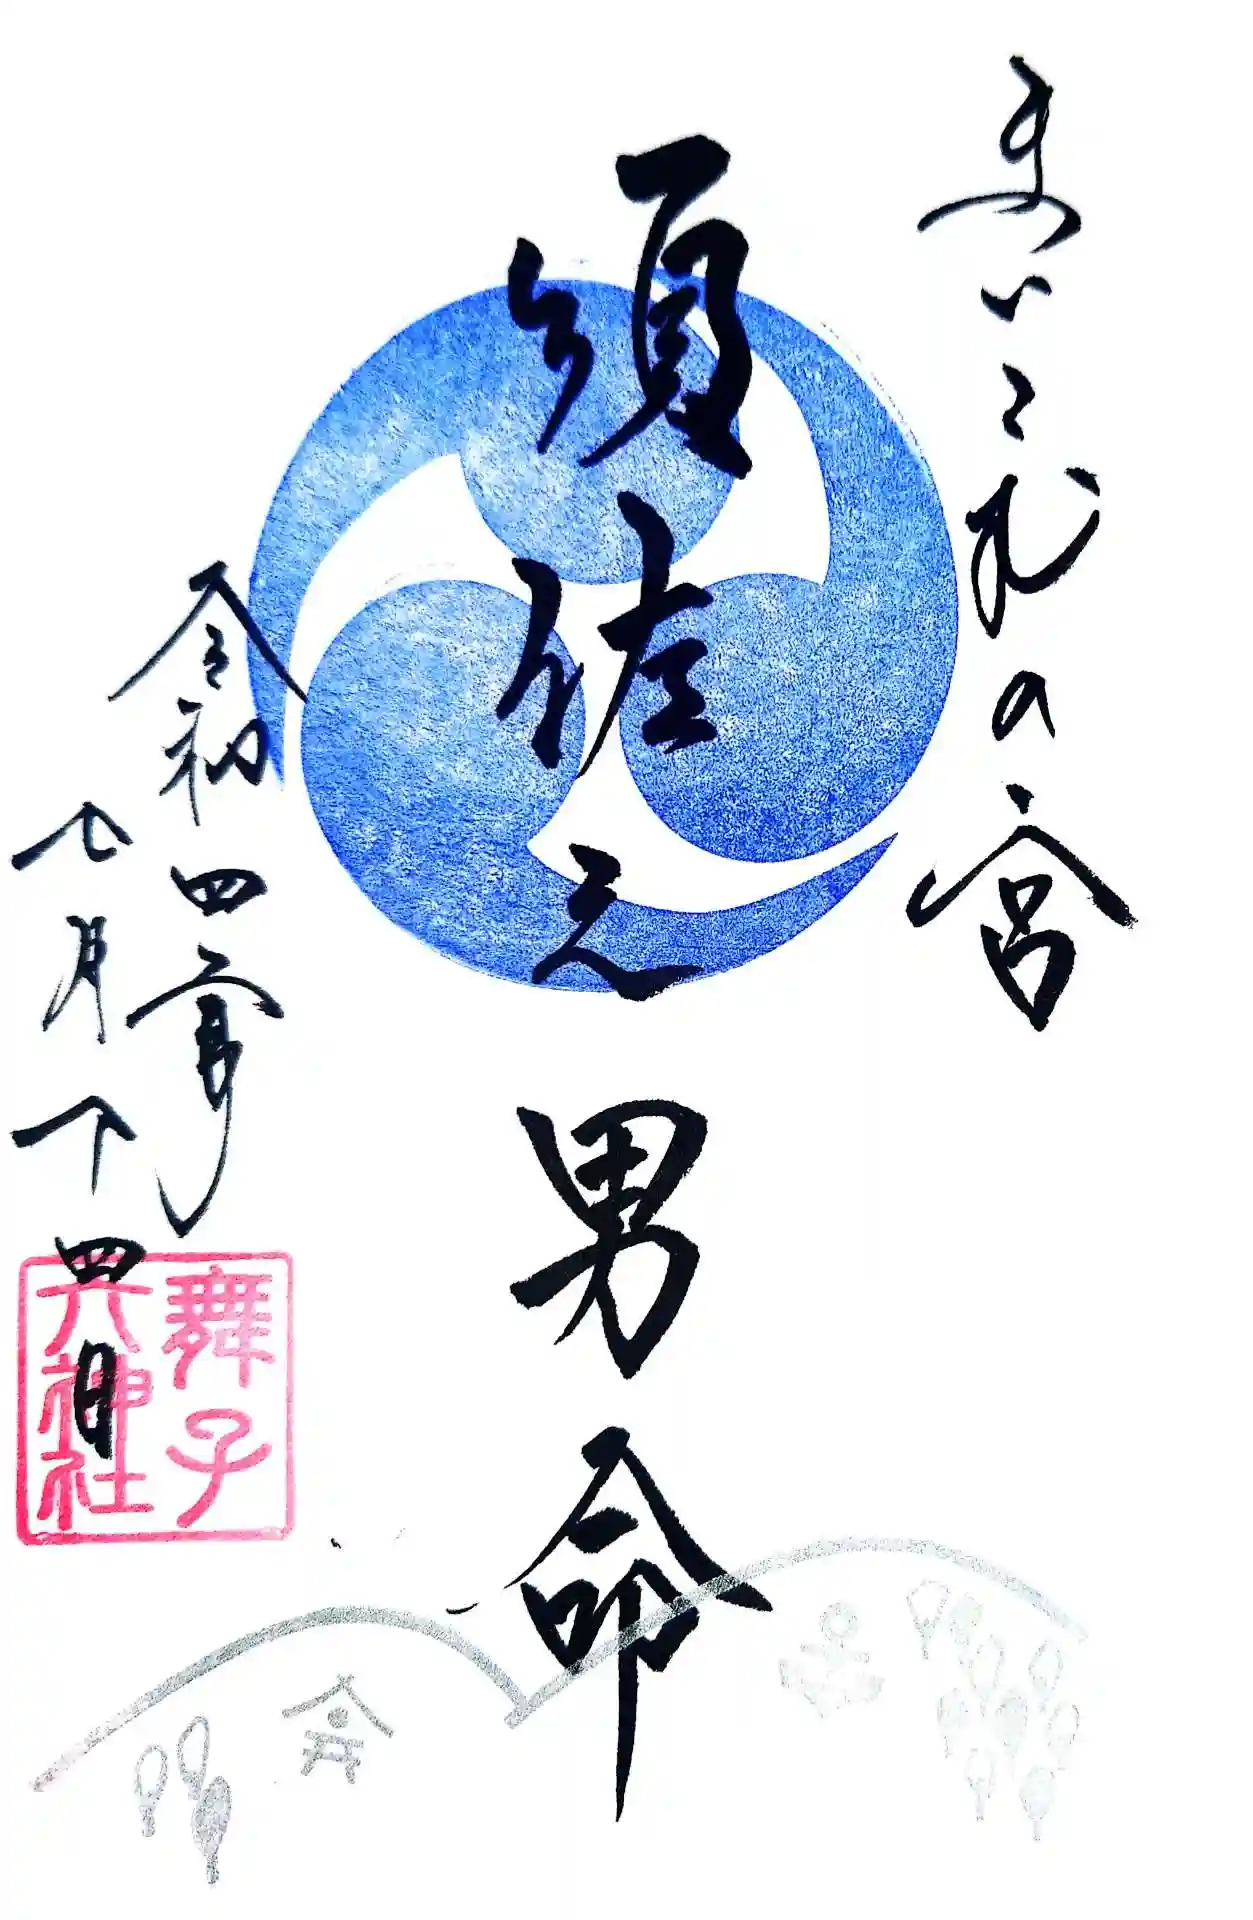 まいこむの宮
須佐之男命
令和四年
七月十四日
舞子
六神社